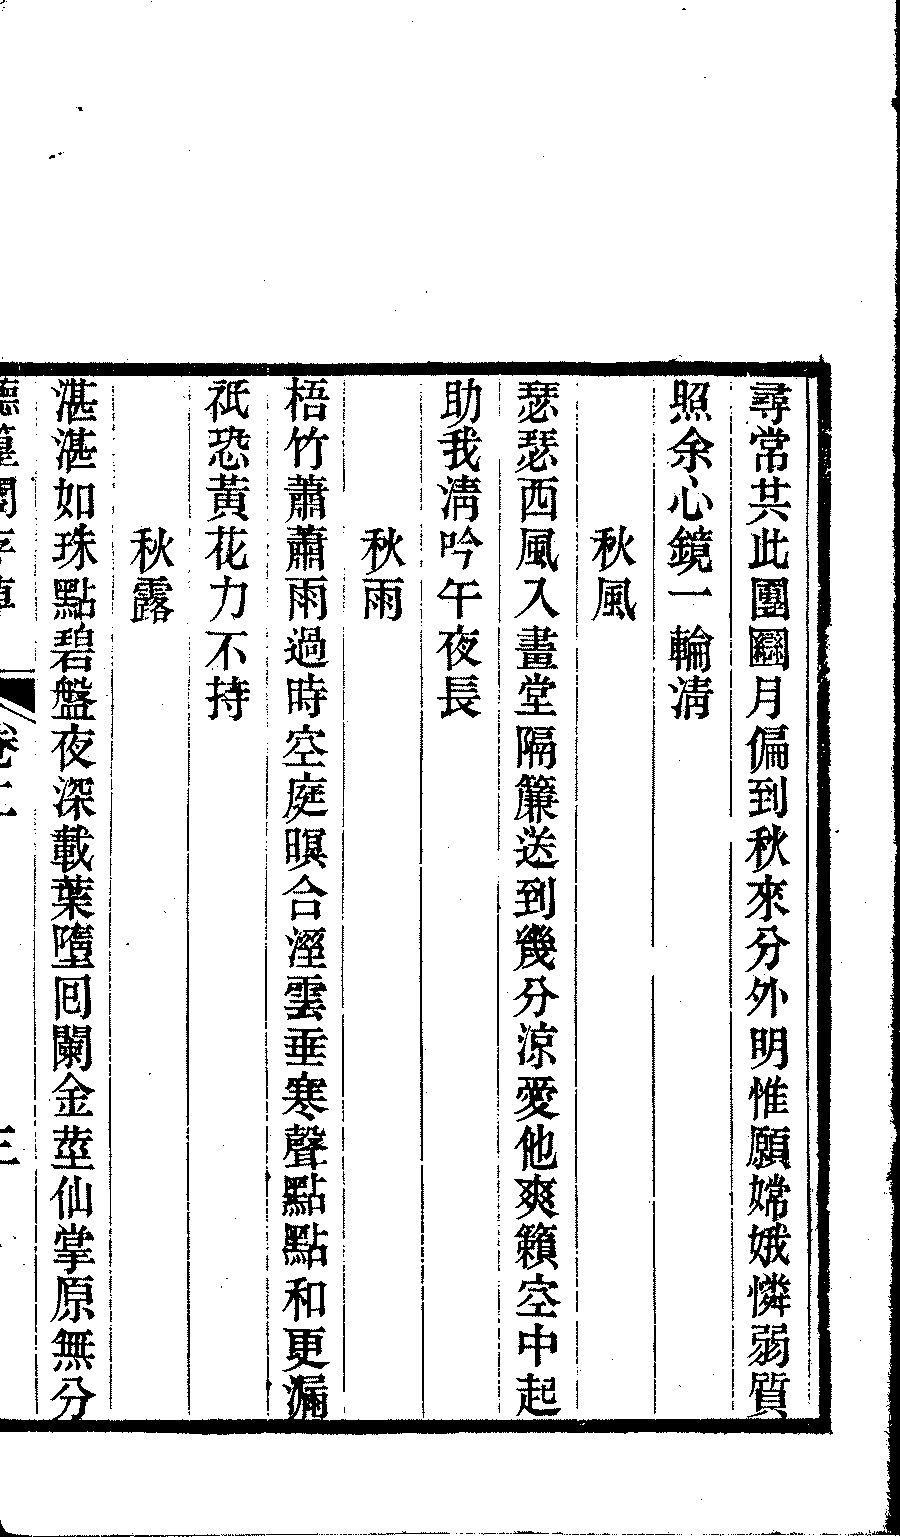 尋常共此團圞月偏到秋來分外明惟願嫦娥憐弱質
照余心鏡一輪淸
秋風
瑟瑟西風入畫堂隔簾送到幾分涼愛他爽籟空中起
助我淸吟午夜長
秋雨
梧竹蕭蕭雨過時空庭暝合溼雲垂寒聲點點和更漏
祇恐黃花力不持
秋露
湛湛如珠點碧盤夜深載葉墮囘闌金莖仙掌原無分
卷二
三